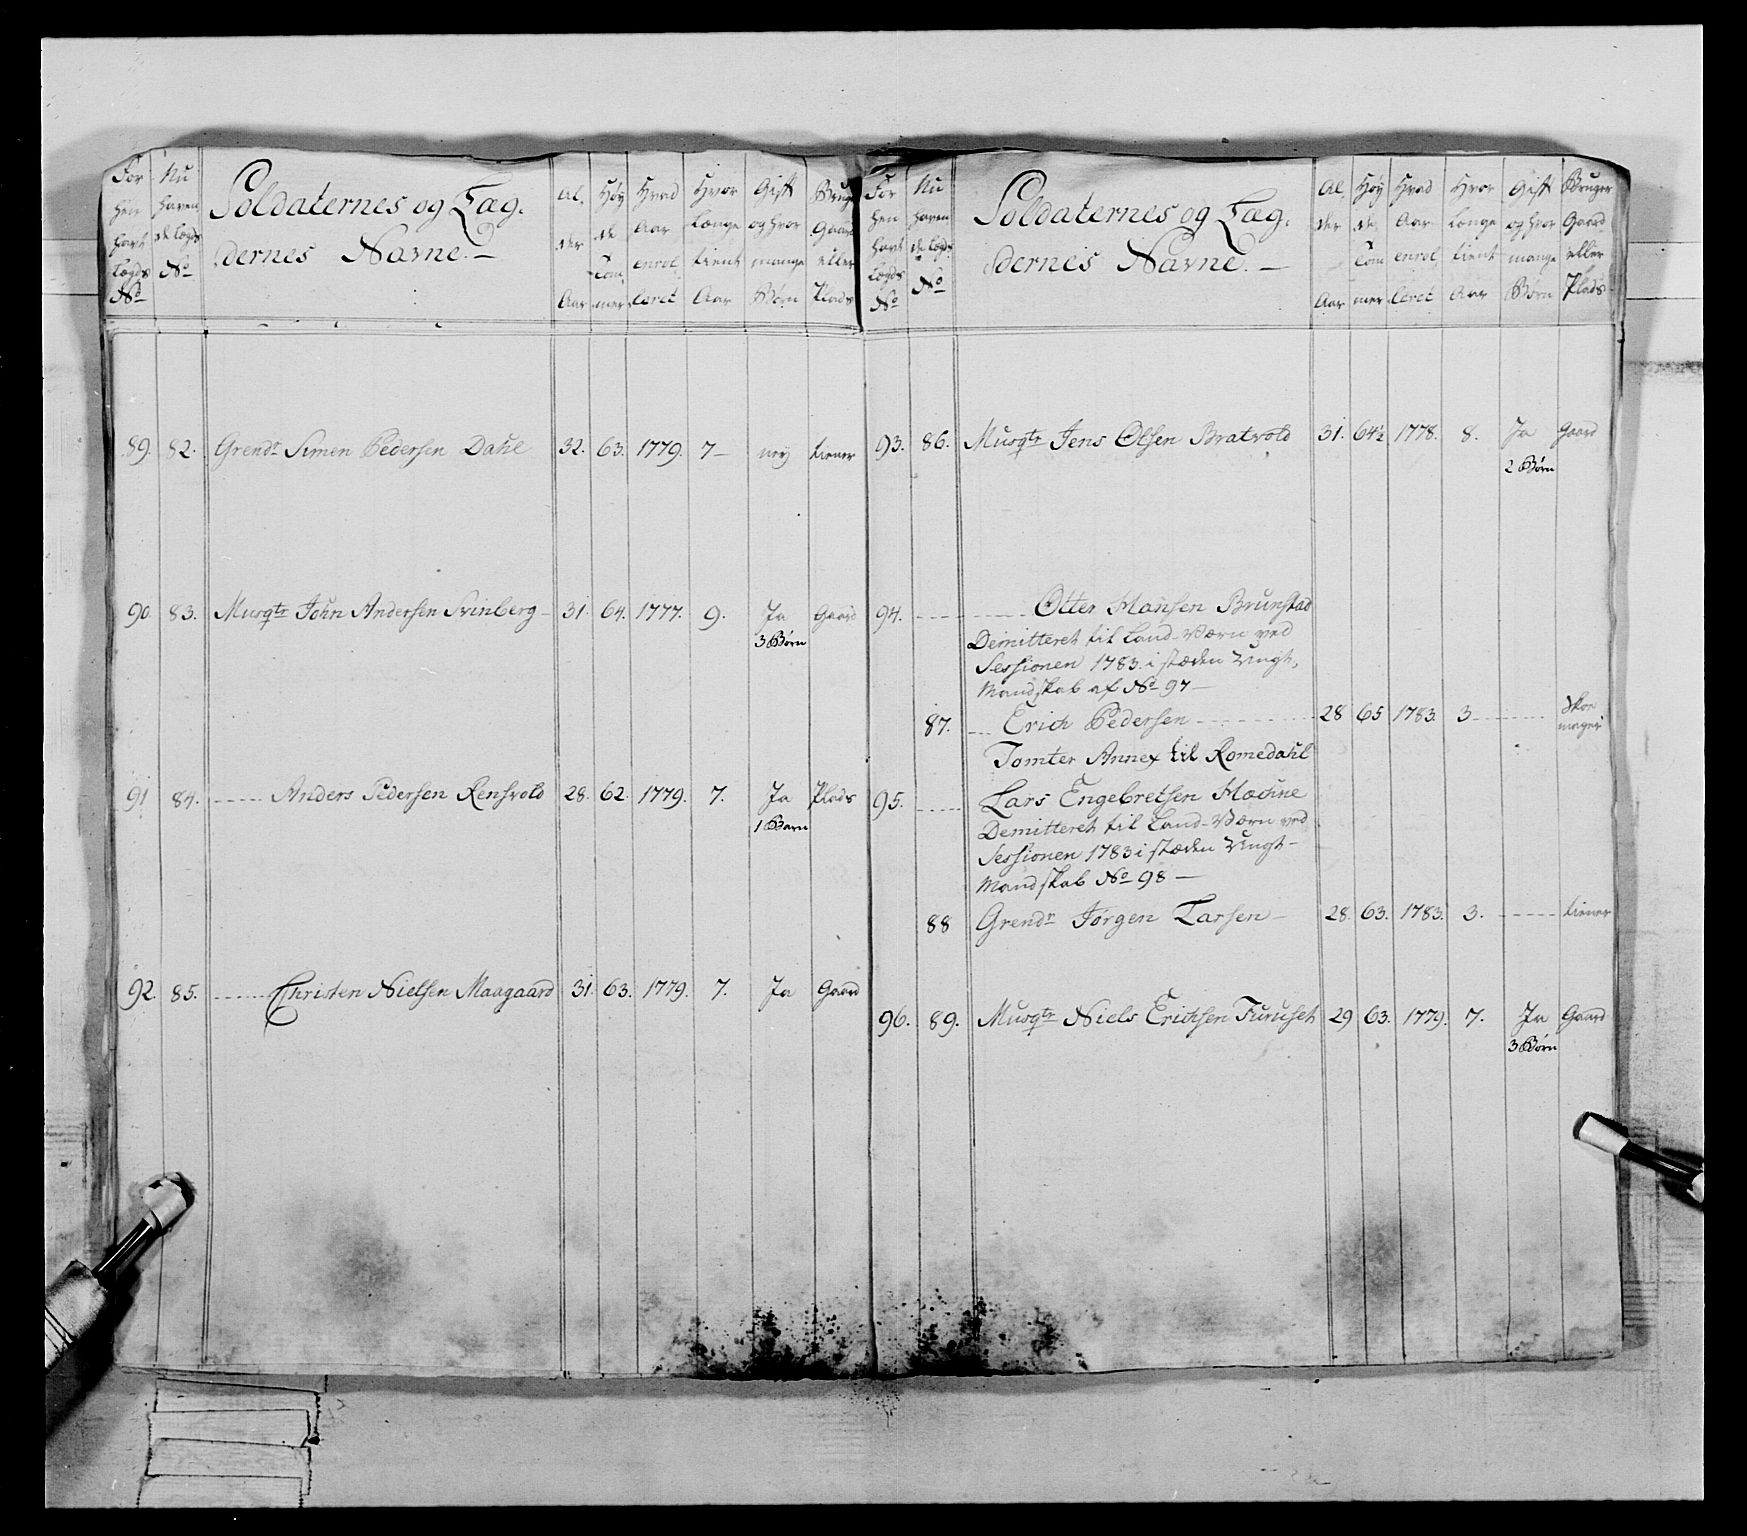 For hen havt Lægds No | Nu haven de Lægds No | Soldaternes og Læg- dernes Navne. — | Al, der Aar | Høy de Tom mer | Hvad Aar enrol, leret | Hvor Længe tient Aar | Gift og hvor mange Børn | Bruger Gaard eller Plads
89. 82. Grendr Simen Pedersen Dahl 32. 63. 1779. 7— ney tiener
90. 83. Musqtr John Andersen Svinberg — 31. 64. 1777. 9. Ja Gaard
3 Børn
91 84. Anders Pedersen Rensvold 28. 62. 1779. 7. Ja Plads
1 Barn
92. 85. Christen Nielsen Maagaard 31. 63. 1779. 7. Ja Gaard
For hen havt Lægds No | Nu haven de Lægds No | Soldaternes og Læg- dernes Navne. — | Al, der Aar | Høy de Tom mer | Hvad Aar enrol, leret | Hvor Længe tient Aar | Gift og hvor mange Børn | Bruger Gaard eller Plads
93. 86. Musqtr Jens Olsen Bratvold 31. 64½ 1778. 8. Ja Gaard
2 Børn
94. Otter Hansen Brunstad
Demitteret til Land-Værn ved
Sessionen 1783. i stæden Ungt-
Mandskab af No 97 —
87. Erich Pedersen 28 65 1783. 3 Skoe mager
Tomter Annex til Romedahl
95. Lars Engebretsen
Demitteret til Land-Værn ved
Sessionen 1783 i stæden Ungt-
Mandskab No 98 —
88 Grendr Jørgen Larsen — 28. 63. 1783. 3. tiener
96. 89. Musqtr Niels Erichsen Furuset 29 63. 1779. 7. Ja Gaard
3 Børn